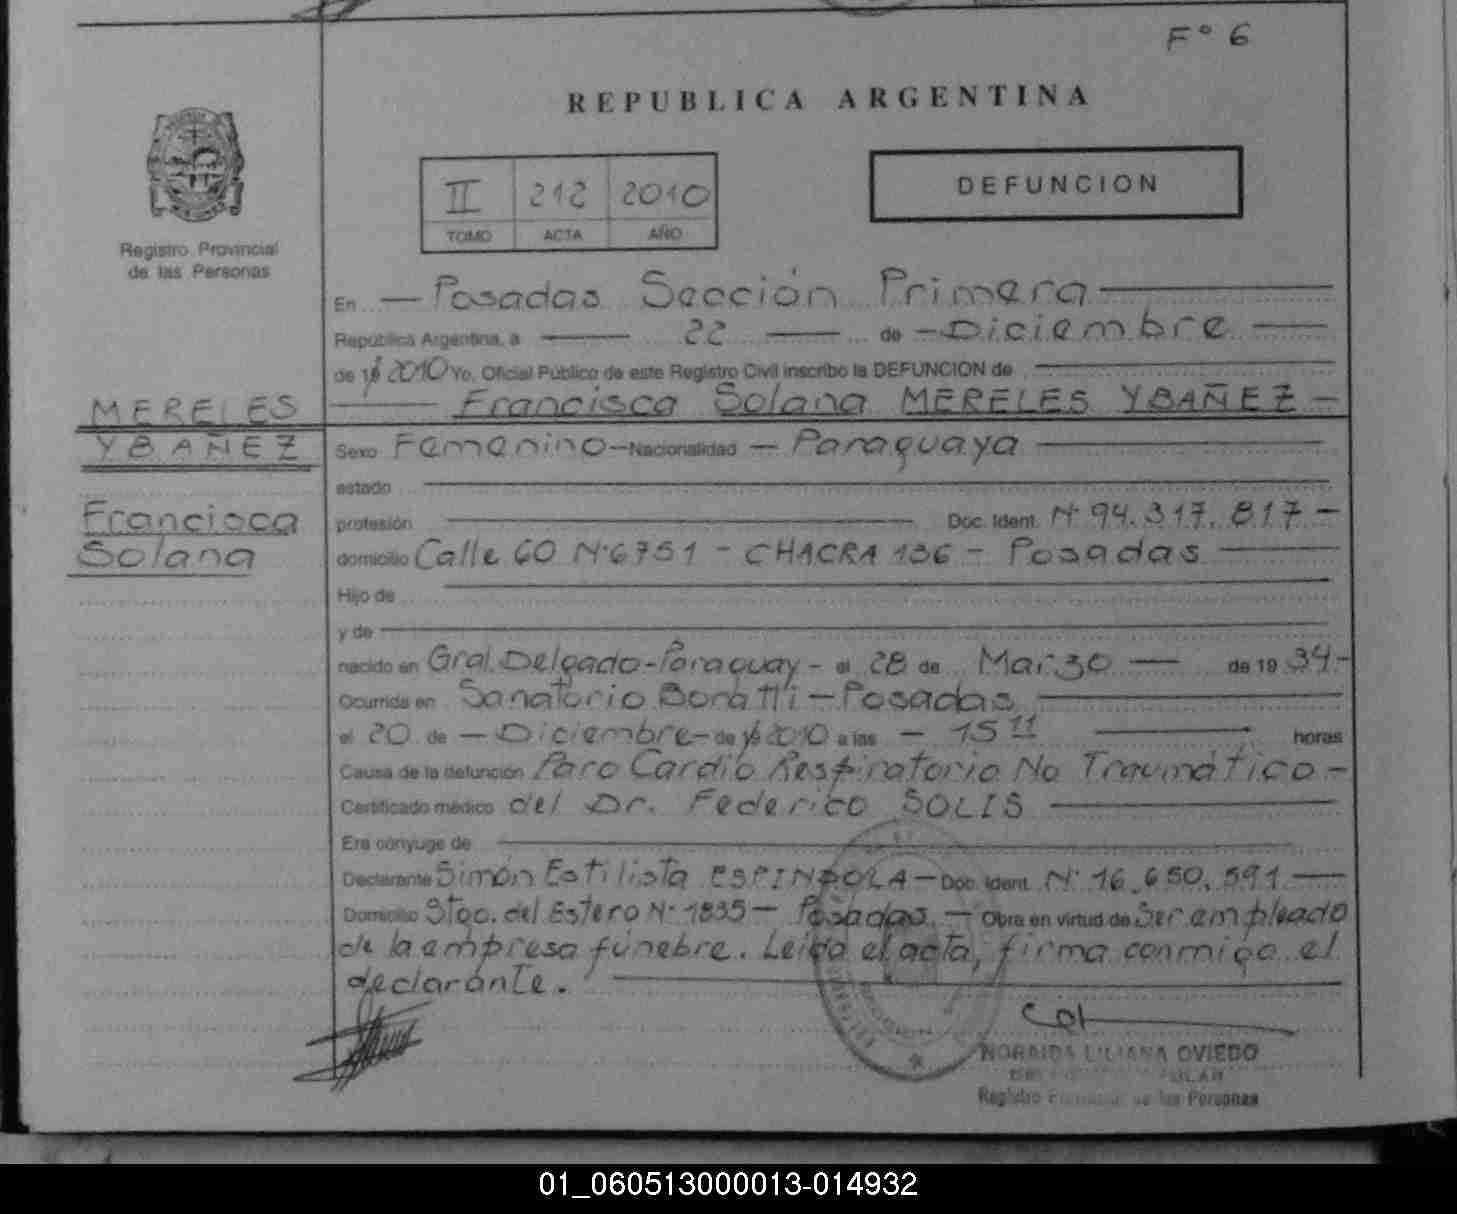 F° 6
REPUBLICA ARGENTINA
II 212 2010
TOMO ACTA AÑO
DEFUNCION
Registro Provincial
de las Personas
En — Posadas Sección Primera —
República Argentina, a — 22 — de — Diciembre —
de 19 2010 Yo, Oficial Público de este Registro Civil inscribo la DEFUNCION de —
— Francisca Solana MERELES YBAÑEZ —
MERELES
YBAÑEZ
Francisca
Solana
Sexo Femenino — Nacionalidad — Paraguaya —
estado —
profesión — Doc. Ident. N° 94.317.817 —
domicilio Calle 60 N° 6751 - CHACRA 136 - Posadas —
Hijo de —
y de —
nacido en Gral. Delgado - Paraguay - el 28 de Marzo — de 19 34 -
Ocurrida en Sanatorio Boratti - Posadas —
el 20 de — Diciembre — de 19 2010 a las — 15 11 — horas
Causa de la defunción Paro Cardio Respiratorio No Traumático —
Certificado médico del Dr. Federico SOLIS —
Era cónyuge de —
Declarante Simón Estilista ESPINDOLA — Doc. Ident. N° 16.650.591 —
Domicilio Stgo. del Estero N° 1835 — Posadas — Obra en virtud de Ser empleado
de la empresa fúnebre. Leída el acta, firma conmigo el
declarante. —
NORAIDA LILIANA OVIEDO
Registro de las Personas
01_060513000013-014932